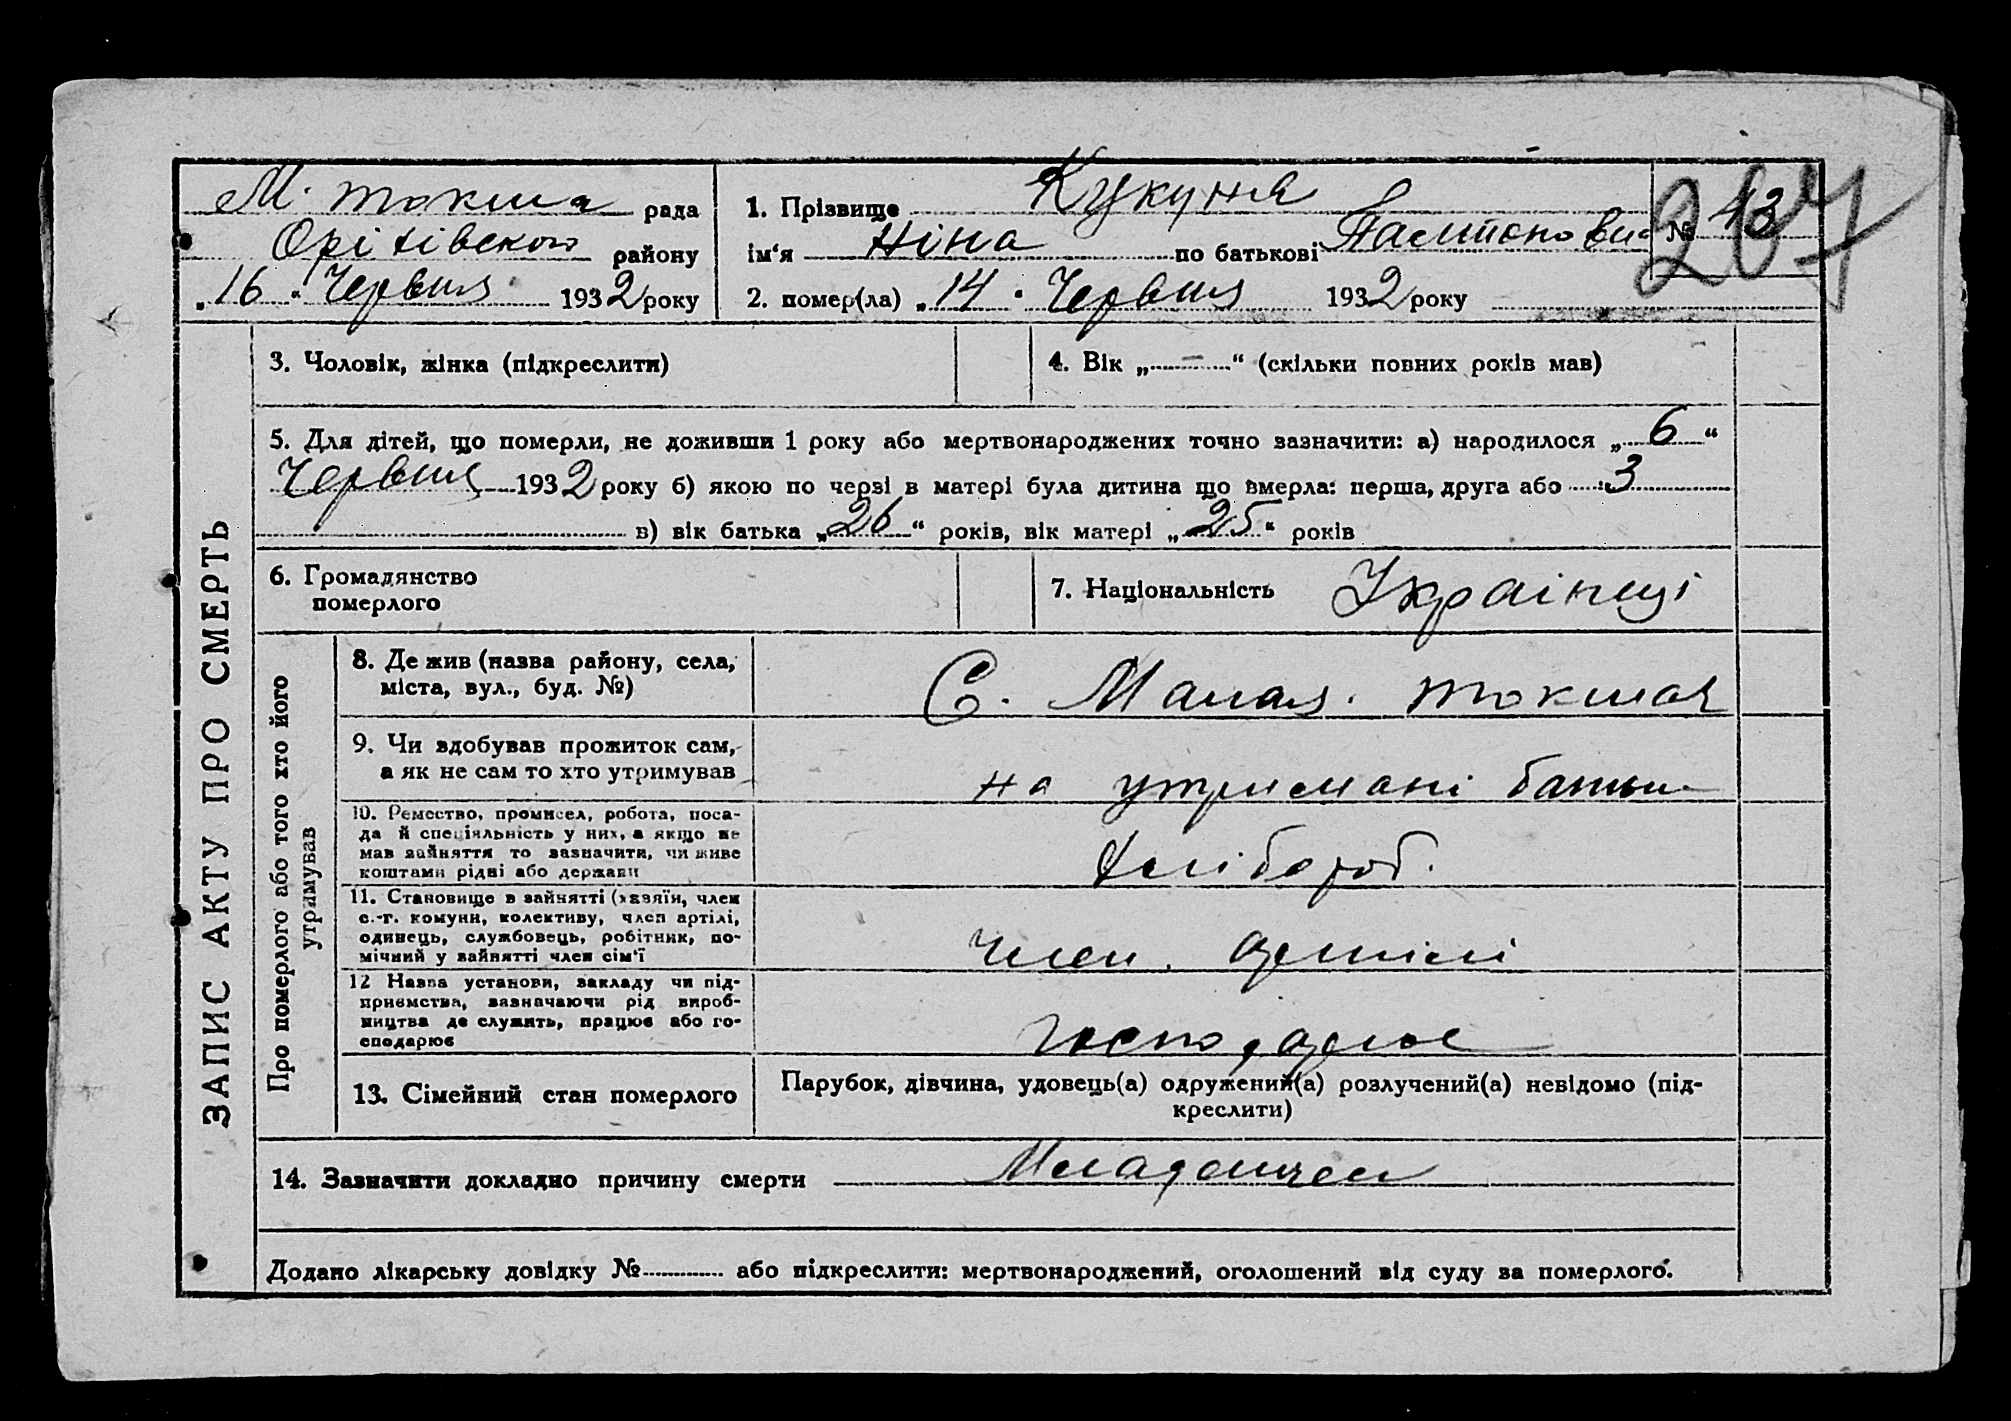 М. Токмач рада
Оріхівського району
„16“ Червня 1932 року
1. Прізвище Кукуня
ім‘я Ніна по батькові
2. помер(ла) „14“ Червня 1932 року
№ 43
207
ЗАПИС АКТУ ПРО СМЕРТЬ
3. Чоловік, жінка (підкреслити)
4. Вік „ — “ (скільки повних років мав)
5. Для дітей, що померли, не доживши 1 року або мертвонароджених точно зазначити: а) народилося „6“
Червня 1932 року б) якою по черзі в матері була дитина що вмерла: перша, друга або 3
в) вік батька „26“ років, вік матері „25“ років
6. Громадянство
померлого
7. Національність Українці
Про померлого або того хто його
утримував
8. Де жив (назва району, села,
міста, вул., буд. №)
С. Малая. Токмач
9. Чи здобував прожиток сам,
а як не сам то хто утримував
на утримані батьки
10. Ремество, промисел, робота, поса-
да й спеціяльність у них, а якщо не
мав зайняття то зазначити, чи живе
коштами рідні або держави
Хлібороб.
11. Становище в зайнятті (хазяїн, член
с.-г. комуни, колективу, член артілі,
одинець, службовець, робітник, по-
мічний у зайнятті член сім‘ї
член артілі
12 Назва установи, закладу чи під-
приємства, зазначаючи рід вироб-
ництва де служить, працює або го-
сподарює
13. Сімейний стан померлого
Парубок, дівчина, удовець(а) одружений(а) розлучений(а) невідомо (під-
креслити)
14. Зазначити докладно причину смерти Младенчем
Додано лікарську довідку № або підкреслити: мертвонароджений, оголошений від суду за померлого.